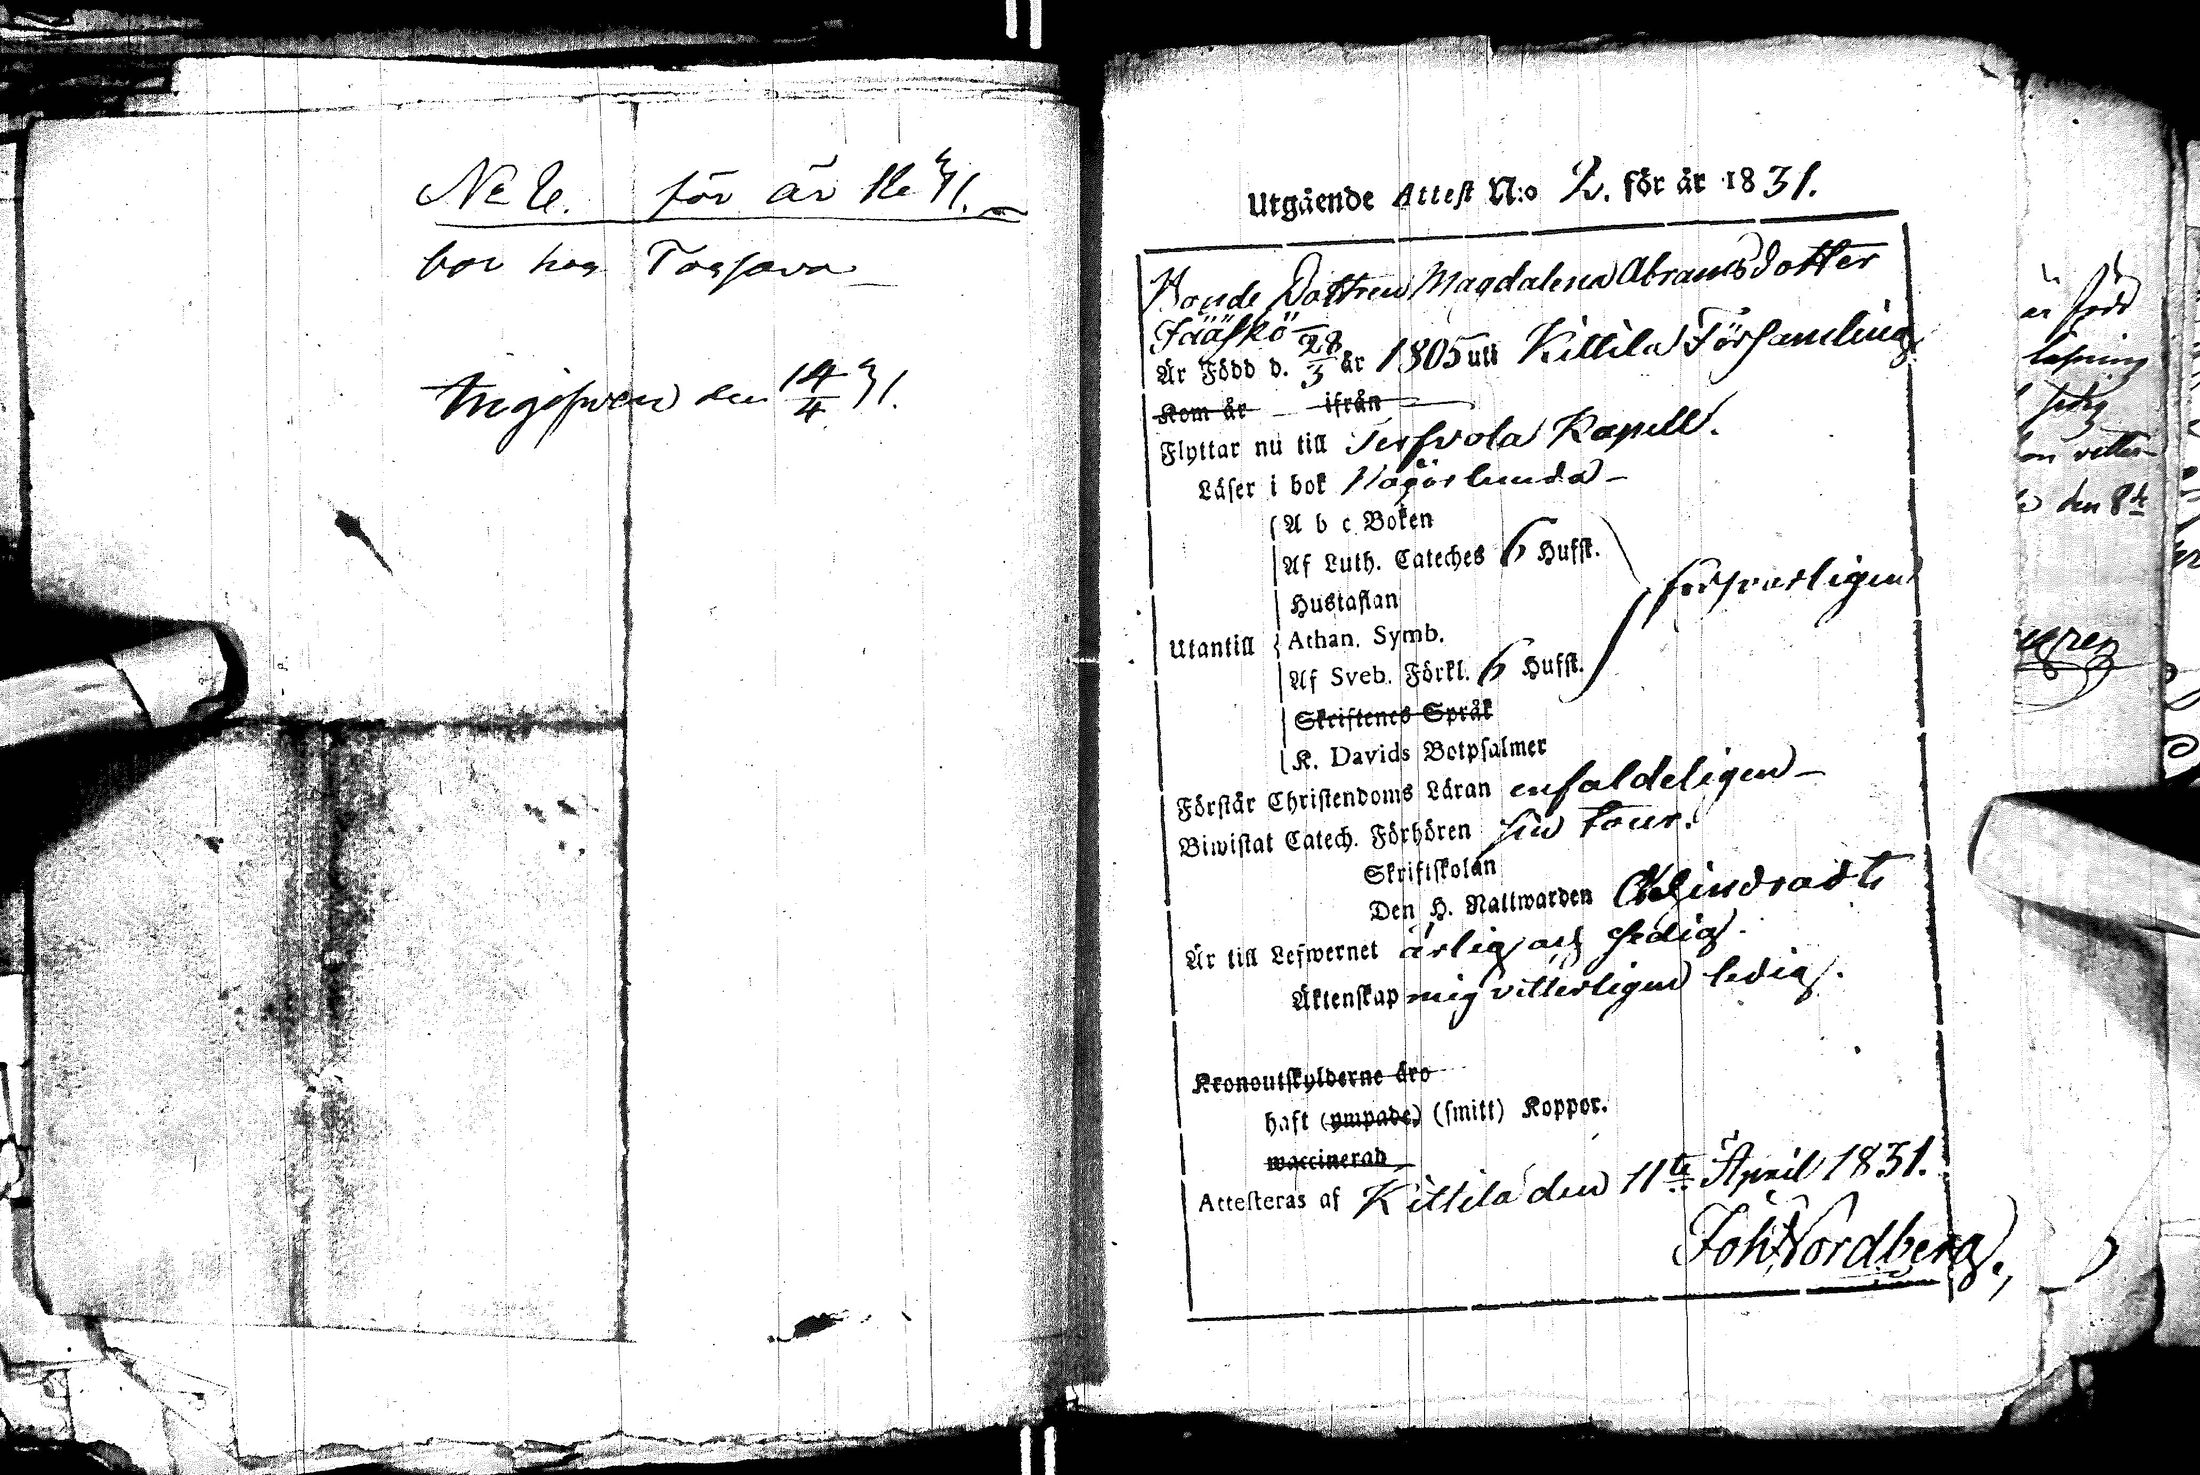 för år
bor hos
Ingifven den 14/4 31.
Utgående Attest N:o 2. för år 1831.
Bonde Dottren Magdalena Abramsdotter
Jääskö
Är Född d. 28/3 år 1805 uti Kittilä Församling
Kom år ifrån
Flyttar nu till Terfvola Kapell.
Läser i bok
A b c Boken
Af Luth. Cateches 6 Hufst.
Hustaflan
försvarligen
Utantill Athan. Symb.
Af Sveb. Förkl. 6 Hufst.
Skriftenes Språk
K. Davids Botpsalmer
Förstår Christendoms Läran enfaldeligen
Biwistat Catech. Förhören sin tour.
Skriftskolan
Den H. Nattwarden
Är till Lefwernet ärlig och sedig.
Äktenskap mig vitterligen ledig.
Kronoutskylderne äro
haft (ympade) (smitt) Koppor.
waccinerad
Attesteras af Kittilä den 11te April 1831.
Joh. Nordberg.
är född
läsning
den 8de